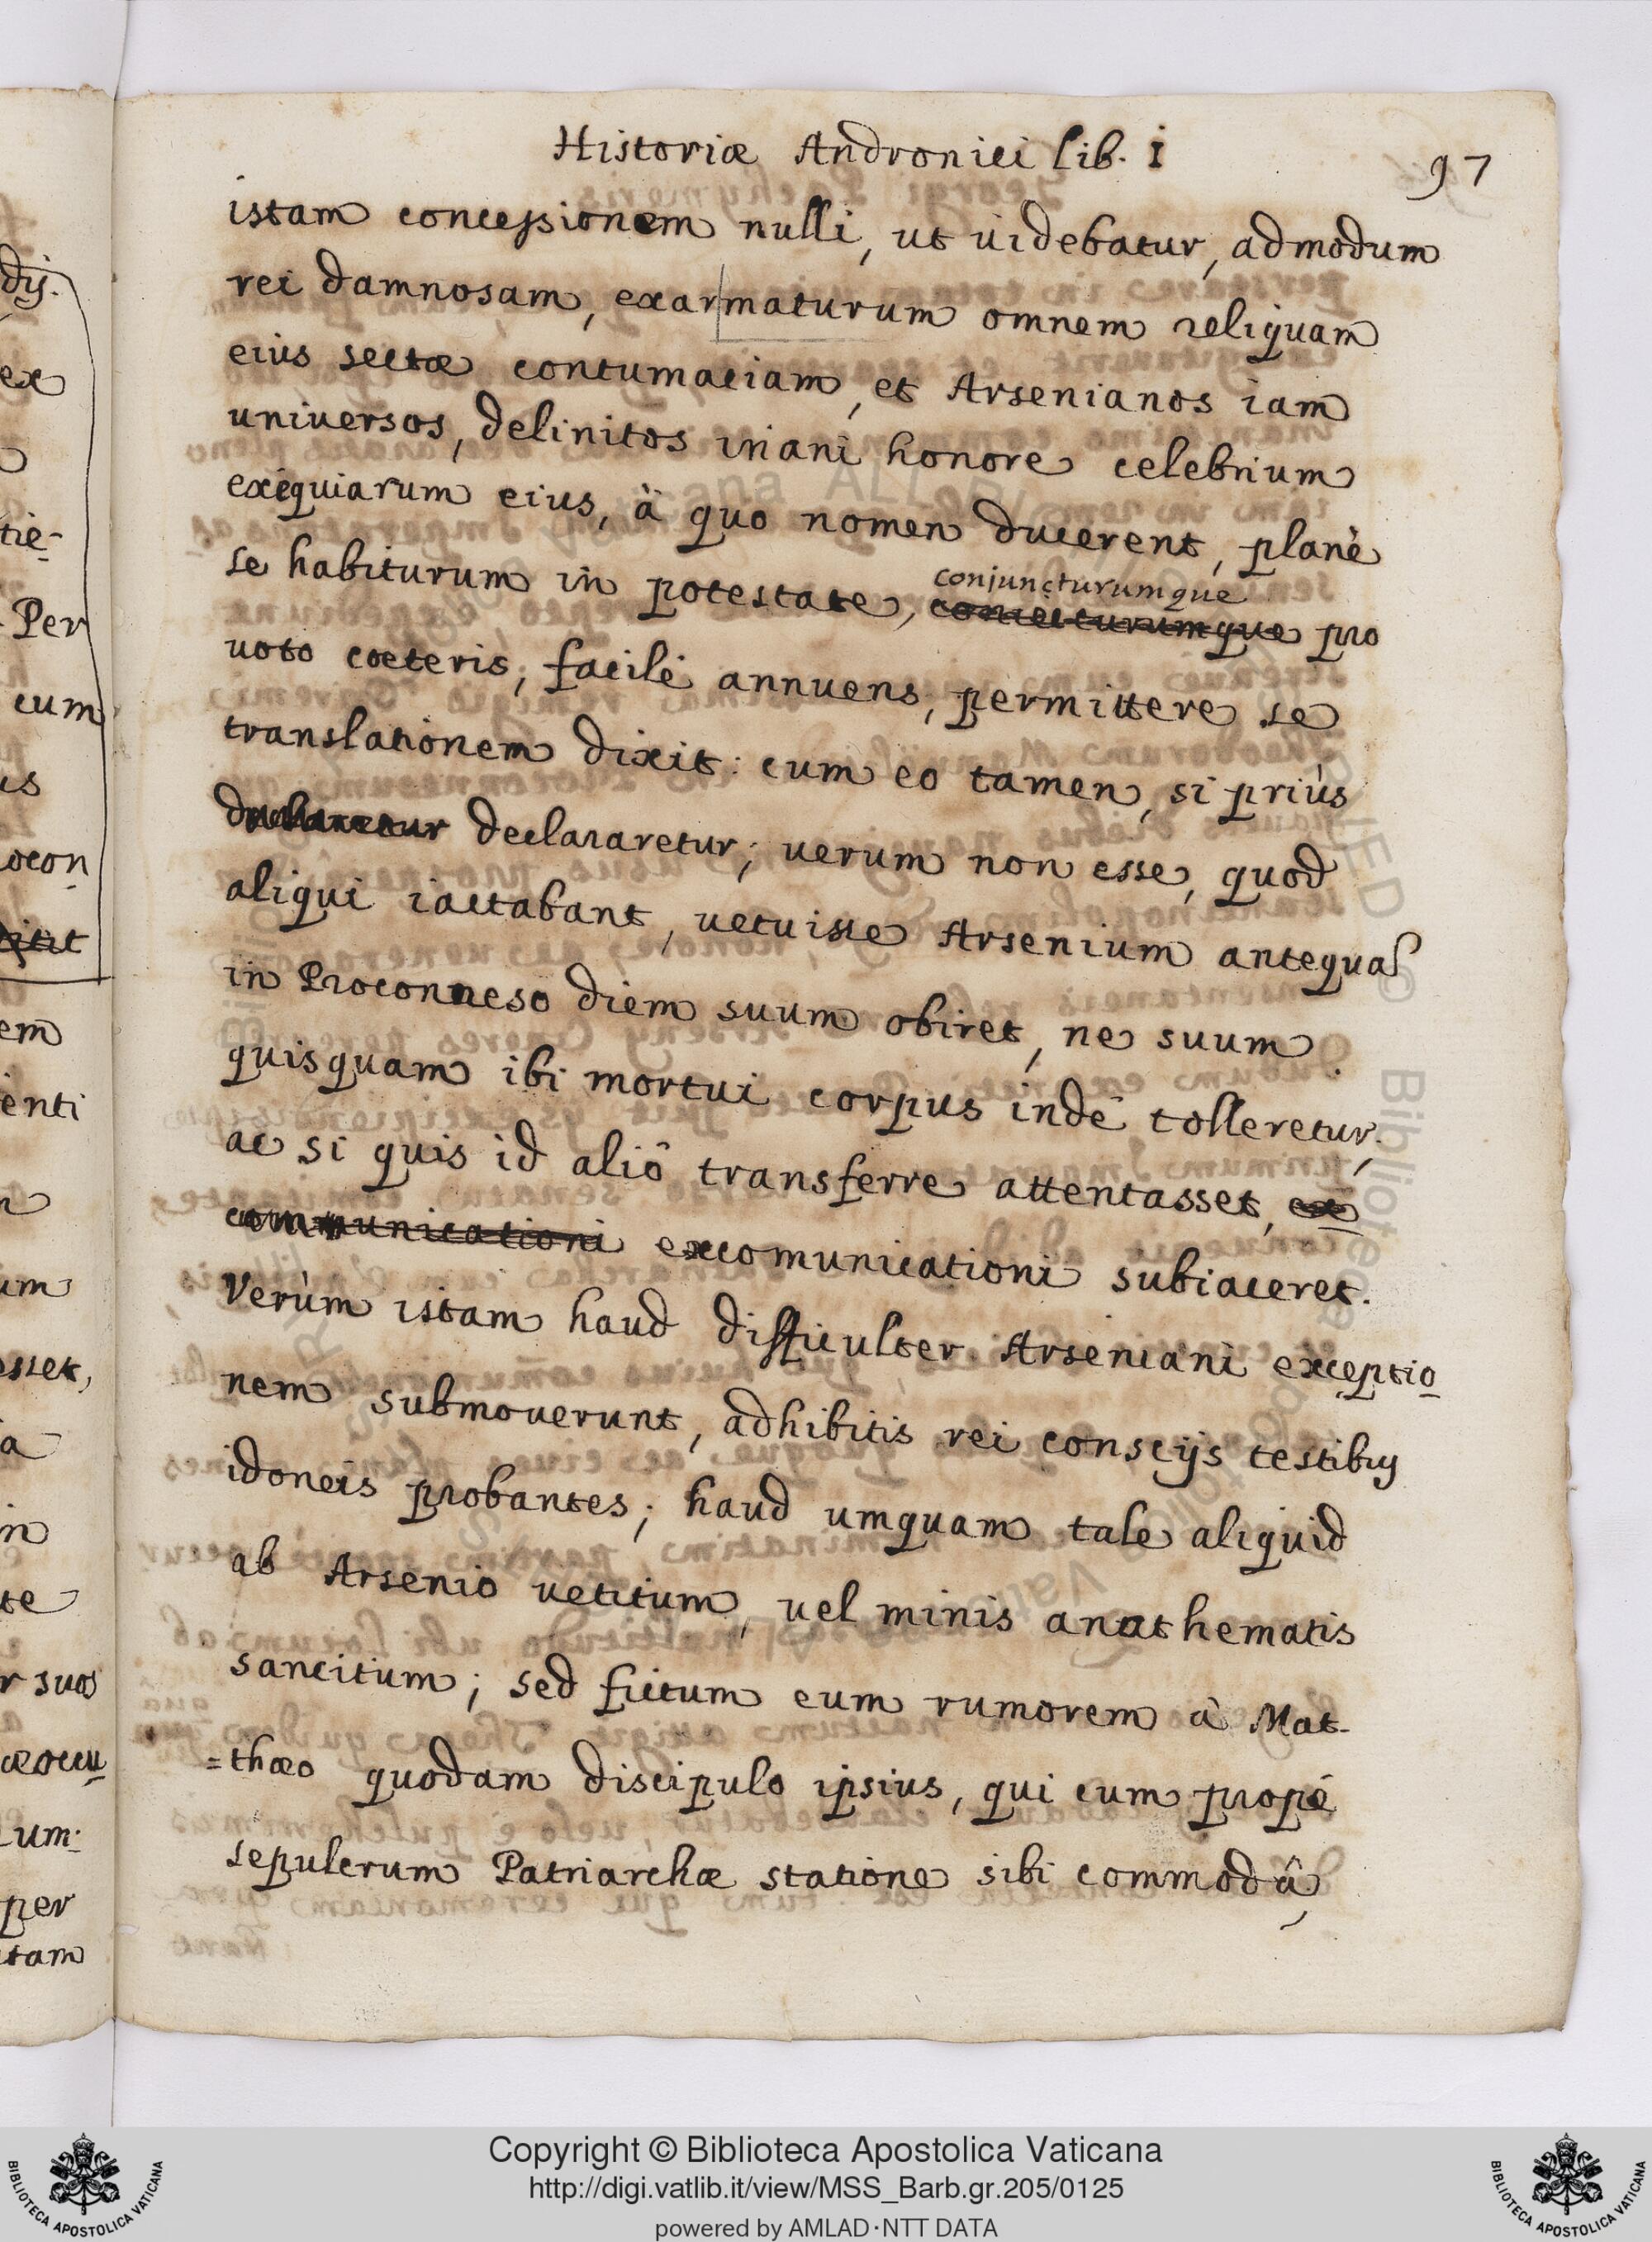 Historiæ Andronici lib. I
97
istam concessionem nulli, ut uidebatur, admodum
rei damnosam, exarmaturum omnem reliquam
eius sectæ contumaciam, et Arsenianos iam
universos, delinitos inani honore celebrium
exequiarum eius, à quo nomen ducerent, planè
conjuncturumque
se habiturum in potestate, pro
uoto cœteris, facilè annuens, permittere se
translationem dixit: cum eo tamen, si priùs
declararetur; uerum non esse, quod
aliqui iactabant, uetuisse Arsenium antequa
in Proconneso diem suum obiret, ne suum
quisquam ibi mortui corpus indè tolleretur,
ac si quis id aliô transferre attentasset, ex
communicationi excomunicationi subiaceret.
Verùm istam haud difficulter Arseniani exceptio
nem submouerunt, adhibitis rei conscijs testibus
idoneis probantes; haud umquam tale aliquid
ab Arsenio uetitum, uel minis anathematis
sancitum; sed fictum eum rumorem à Mat-
=thæo quodam discipulo ipsius, qui cum propè
sepulcrum Patriarchæ statione sibi commodâ,
dij.
ex
tie-
Per
cum
us
ocon
em
enti
um
esset,
a
in
te
r suos
um
per
tam
Copyright © Biblioteca Apostolica Vaticana
http://digi.vatlib.it/view/MSS_Barb.gr.205/0125
powered by AMLAD·NTT DATA
BIBLIOTECA APOSTOLICA VATICANA
BIBLIOTECA APOSTOLICA VATICANA